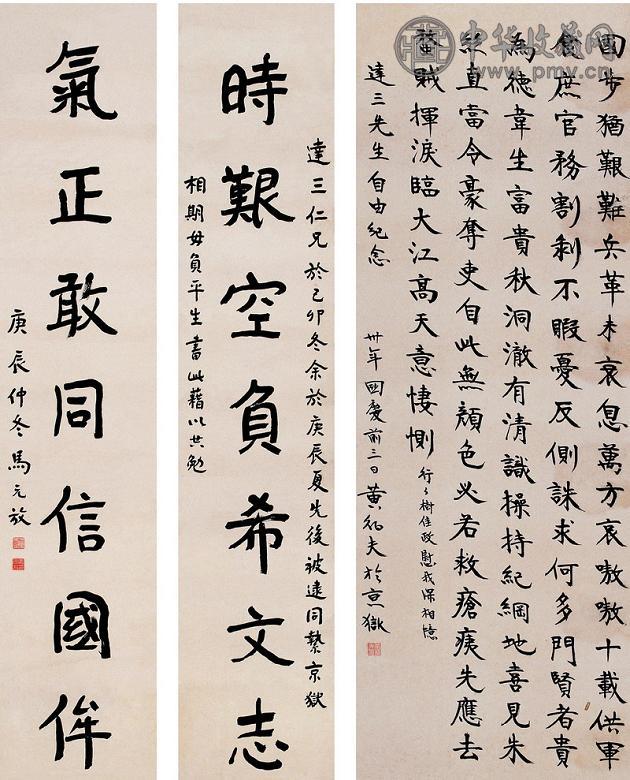 中华收藏网
www.pmv.cn
國步猶艱難兵革未衰息萬方哀嗷嗷十載供軍
食庶官務割剝不暇憂反側誅求何多門賢者貴
為德韋生富貴秋洞澈有清識操持紀綱地喜見朱
絲直當令豪奪吏自此無顏色必若救瘡痍先應去
蟊賊揮淚臨大江高天意悽惻
行行樹佳政慰我深相憶
達三先生自由紀念
卅年國慶前三日黃
夫於京獄
達三仁兄於己卯冬余於庚辰夏先後被逮同繫京獄
時艱空負希文志
相期毋負平生書此藉以共勉
氣正敢同信國侔
庚辰仲冬馬元放